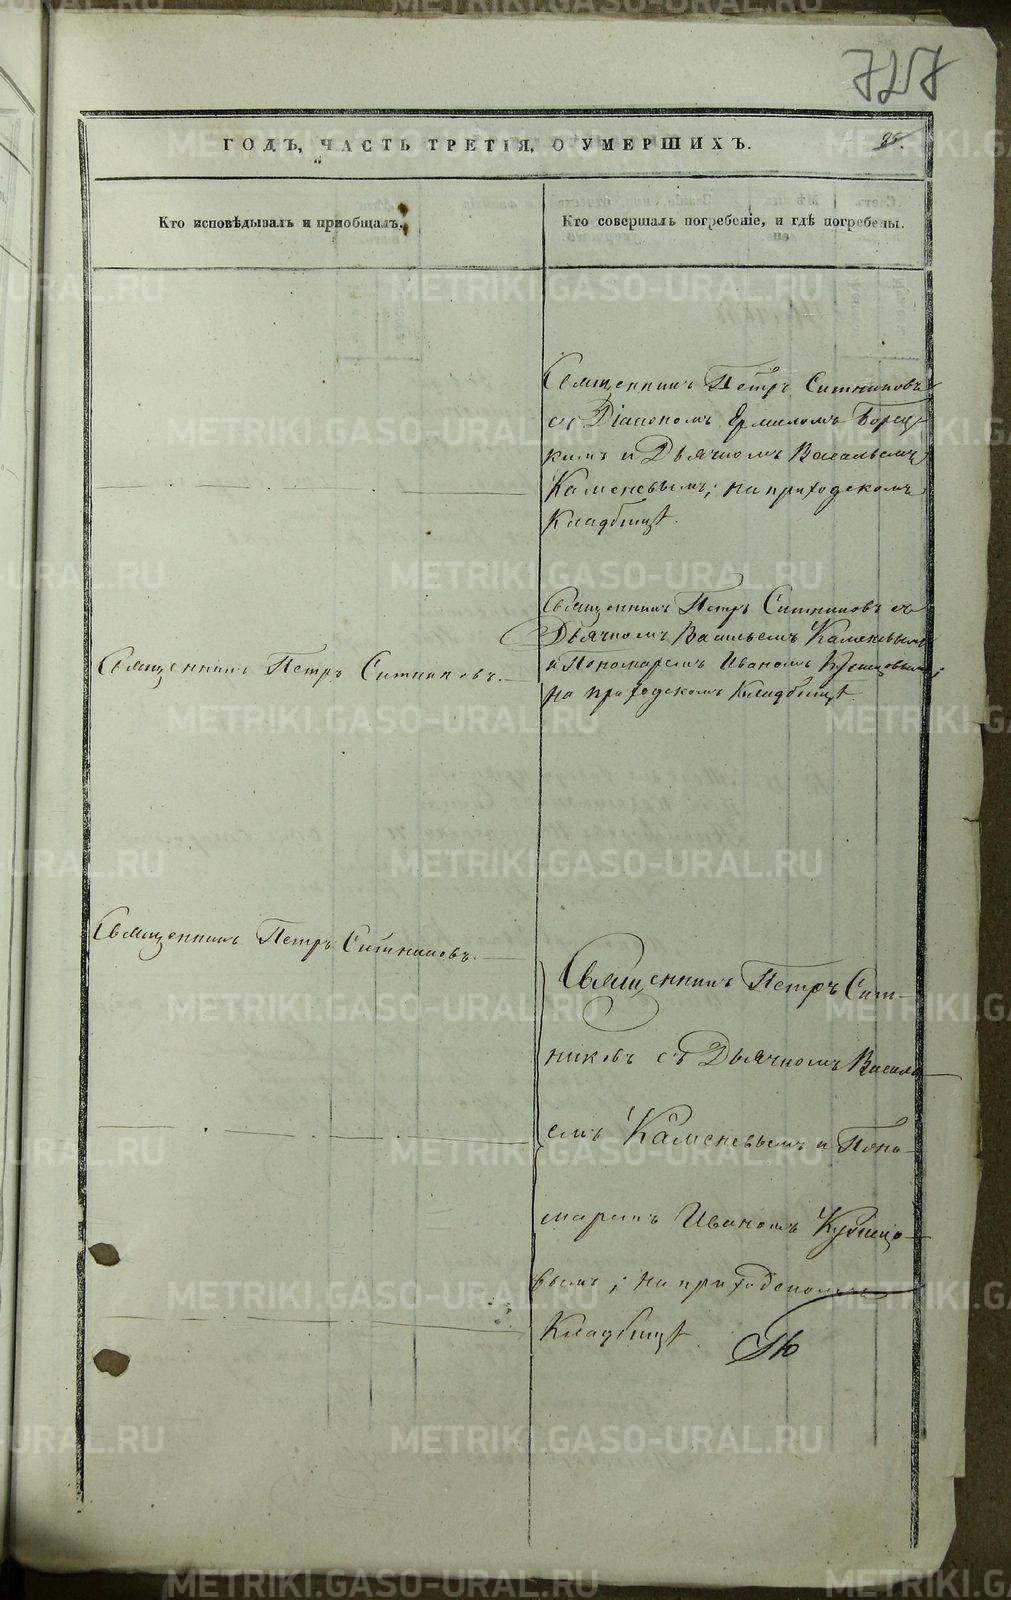 727
ГОДЪ, ЧАСТЬ ТРЕТІЯ, О УМЕРШИХЪ.
Кто исповѣдывалъ и пріобщалъ.
Кто совершалъ погребеніе, и гдѣ погребены.
Священникъ Петръ Ситниковъ
съ Діакономъ Ермиломъ Борец-
кимъ и Дьячкомъ Васильемъ
Каменевымъ; на приходскомъ
Кладбищѣ.
Священникъ Петръ Ситниковъ.
Священникъ Петръ Ситниковъ съ
Дьячкомъ Васильемъ Каменевымъ
и Пономаремъ Иваномъ Кузнецовымъ;
на приходскомъ Кладбищѣ
Священникъ Петръ Ситниковъ.
Священникъ Петръ Сит-
никовъ съ Дьячкомъ Василь-
емъ Каменевымъ и Поно-
маремъ Иваномъ Кузнецо-
вымъ; на приходскомъ
Кладбищѣ.
METRIKI.GASO-URAL.RU